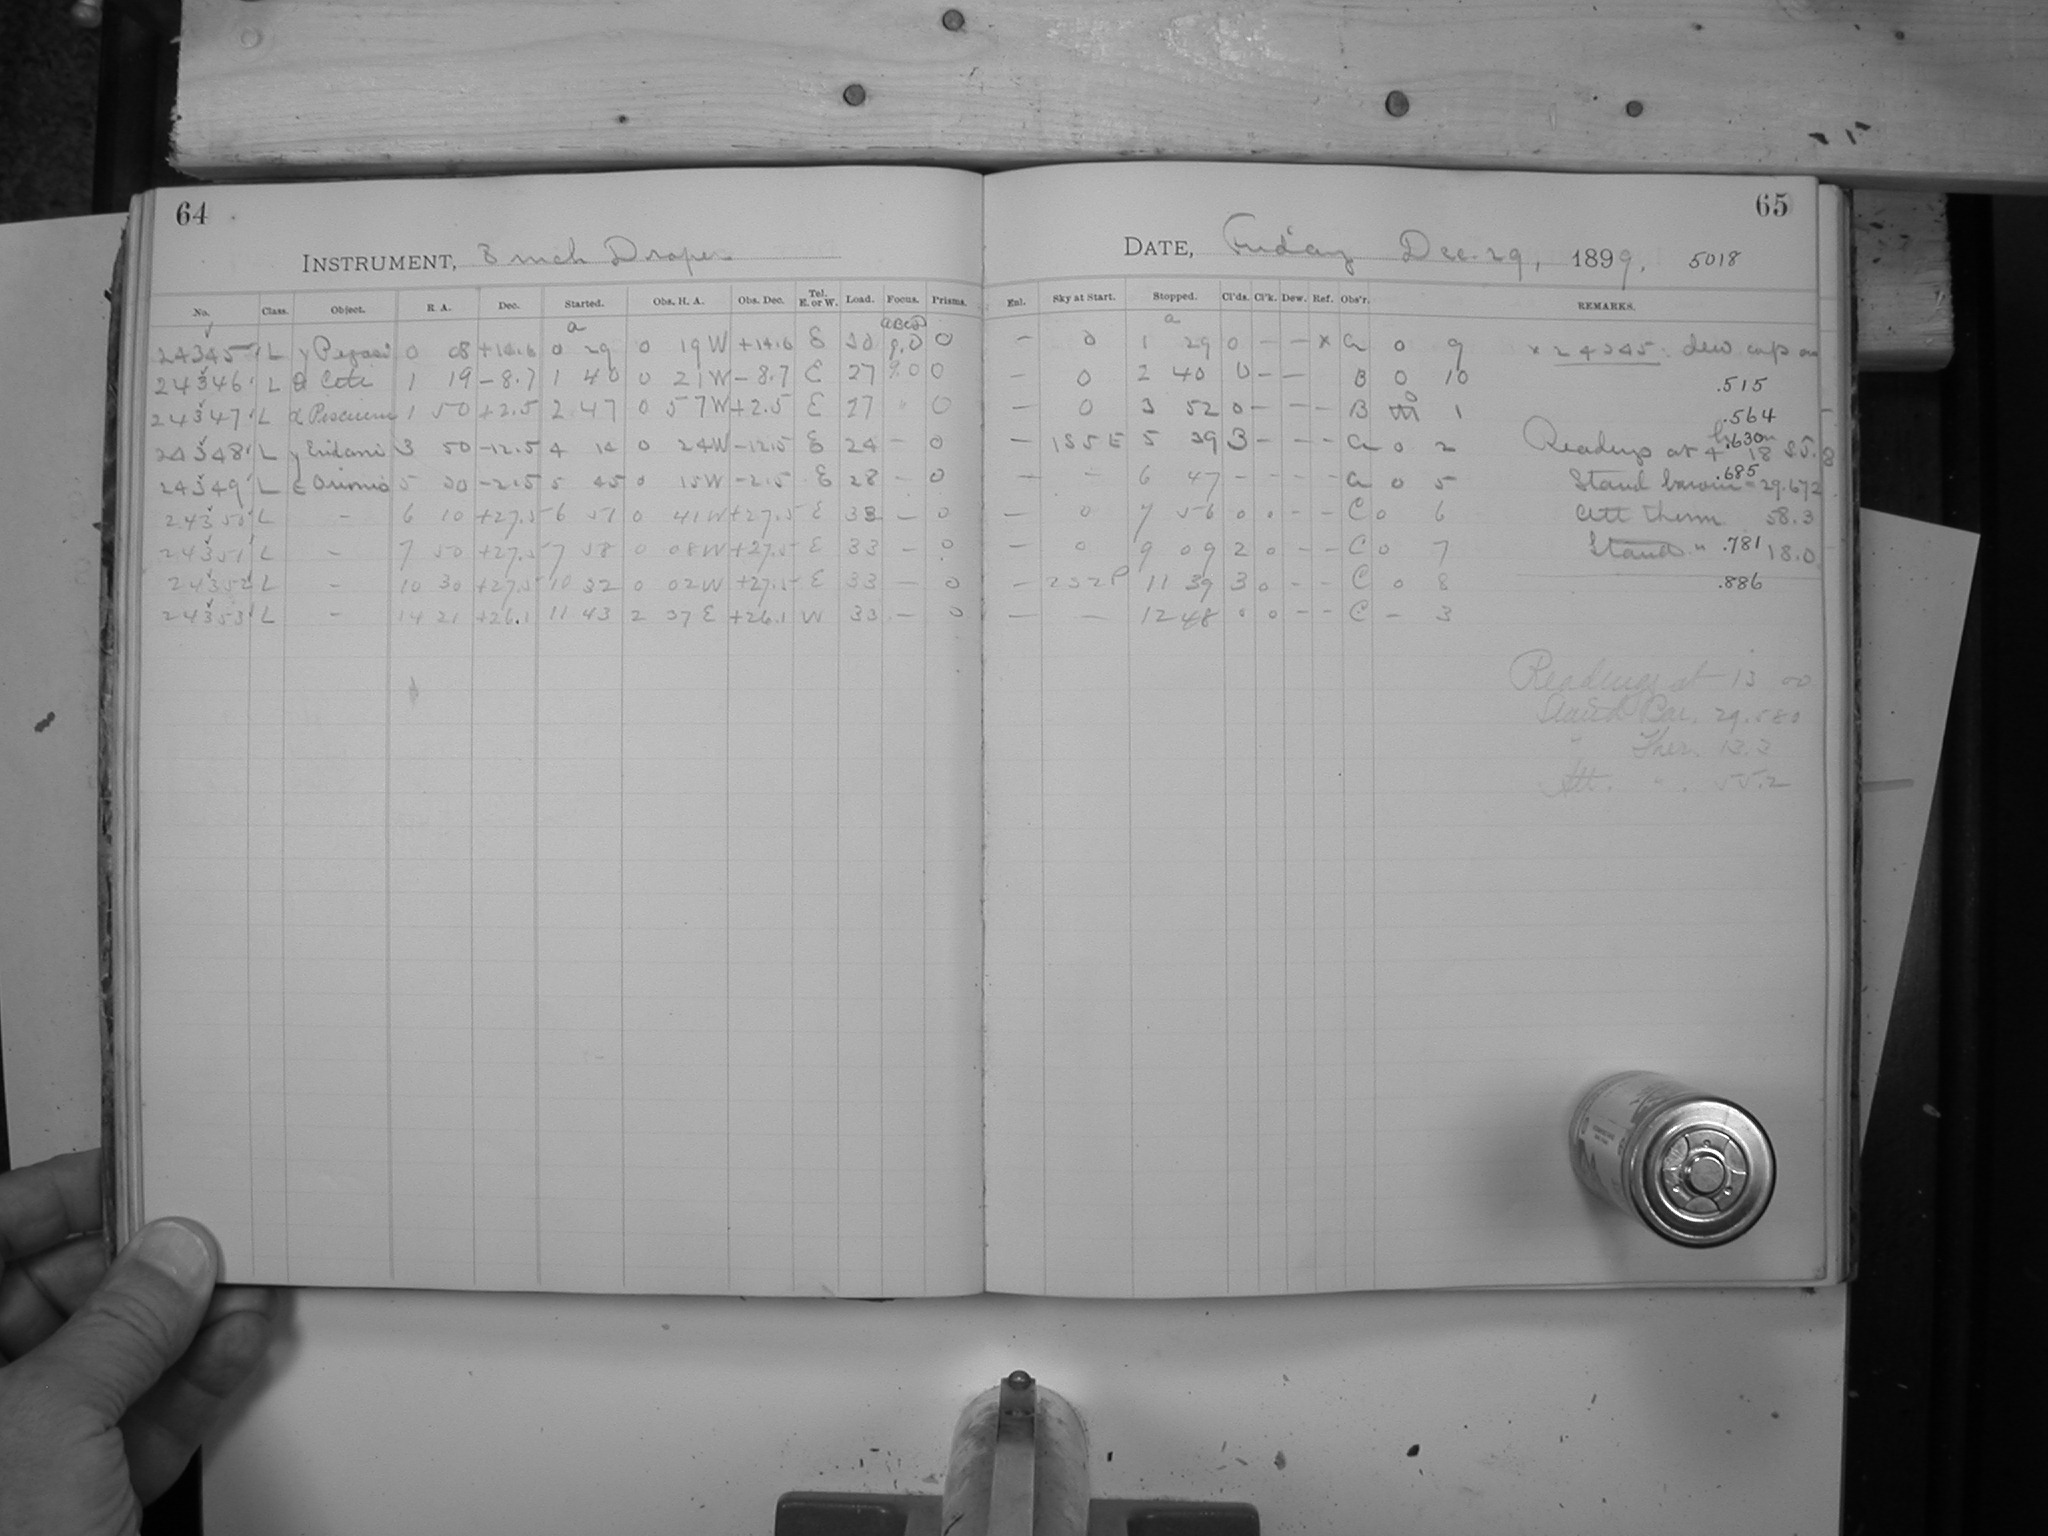 64
INSTRUMENT, 8 inch Draper
No. Class. Object. R. A. Dec. Started. Obs. H. A. Obs. Dec. Tel. E. or W. Load. Focus. Prisms.
24345 L γ Pegasi 0 08 +14.6 0 29 0 19 W +14.6 E 30 9.0 0
24346 L θ Ceti 1 19 -8.7 1 40 0 21 W -8.7 E 27 9.0 0
24347 L α Piscium 1 50 +2.5 2 47 0 57 W +2.5 E 27 " 0
24348 L γ Eridani 3 50 -12.5 4 14 0 24 W -12.5 E 24 - 0
24349 L ε Orionis 5 30 -2.5 5 45 0 15 W -2.5 E 28 - 0
24350 L - 6 10 +27.5 6 51 0 41 W +27.5 E 33 - 0
24351 L - 7 50 +27.5 7 58 0 08 W +27.5 E 33 - 0
24352 L - 10 30 +27.5 10 32 0 02 W +27.5 E 33 - 0
24353 L - 14 21 +26.1 11 43 2 37 E +26.1 W 33 - 0
65
DATE, Friday Dec. 29, 1899. 5018
Enl. Sky at Start. Stopped. Cl'ds. Cl'k. Dew. Ref. Obs'r. REMARKS.
- 0 1 29 0 - - x a 0 9 x 24345. dew cap on
- 0 2 40 0 - - B 0 10 .515
- 0 3 52 0 - - - B 0 1 .564
- 1S5E 5 39 3 - - - a 0 2 Readings at 4 18 S.T. .630
- - 6 47 - - - - a 0 5 Stand barom = 29.672 .685
- 0 7 56 0 0 - - C 0 6 Att therm 58.3
- 0 9 09 2 0 - - C 0 7 Stand " 18.0 .781
- 2S2P 11 39 3 0 - - C 0 8 .886
- - 12 48 0 0 - - C - 3
Readings at 13 00
Stand Bar. 29.580
" Ther. 13.3
Att. " 55.2